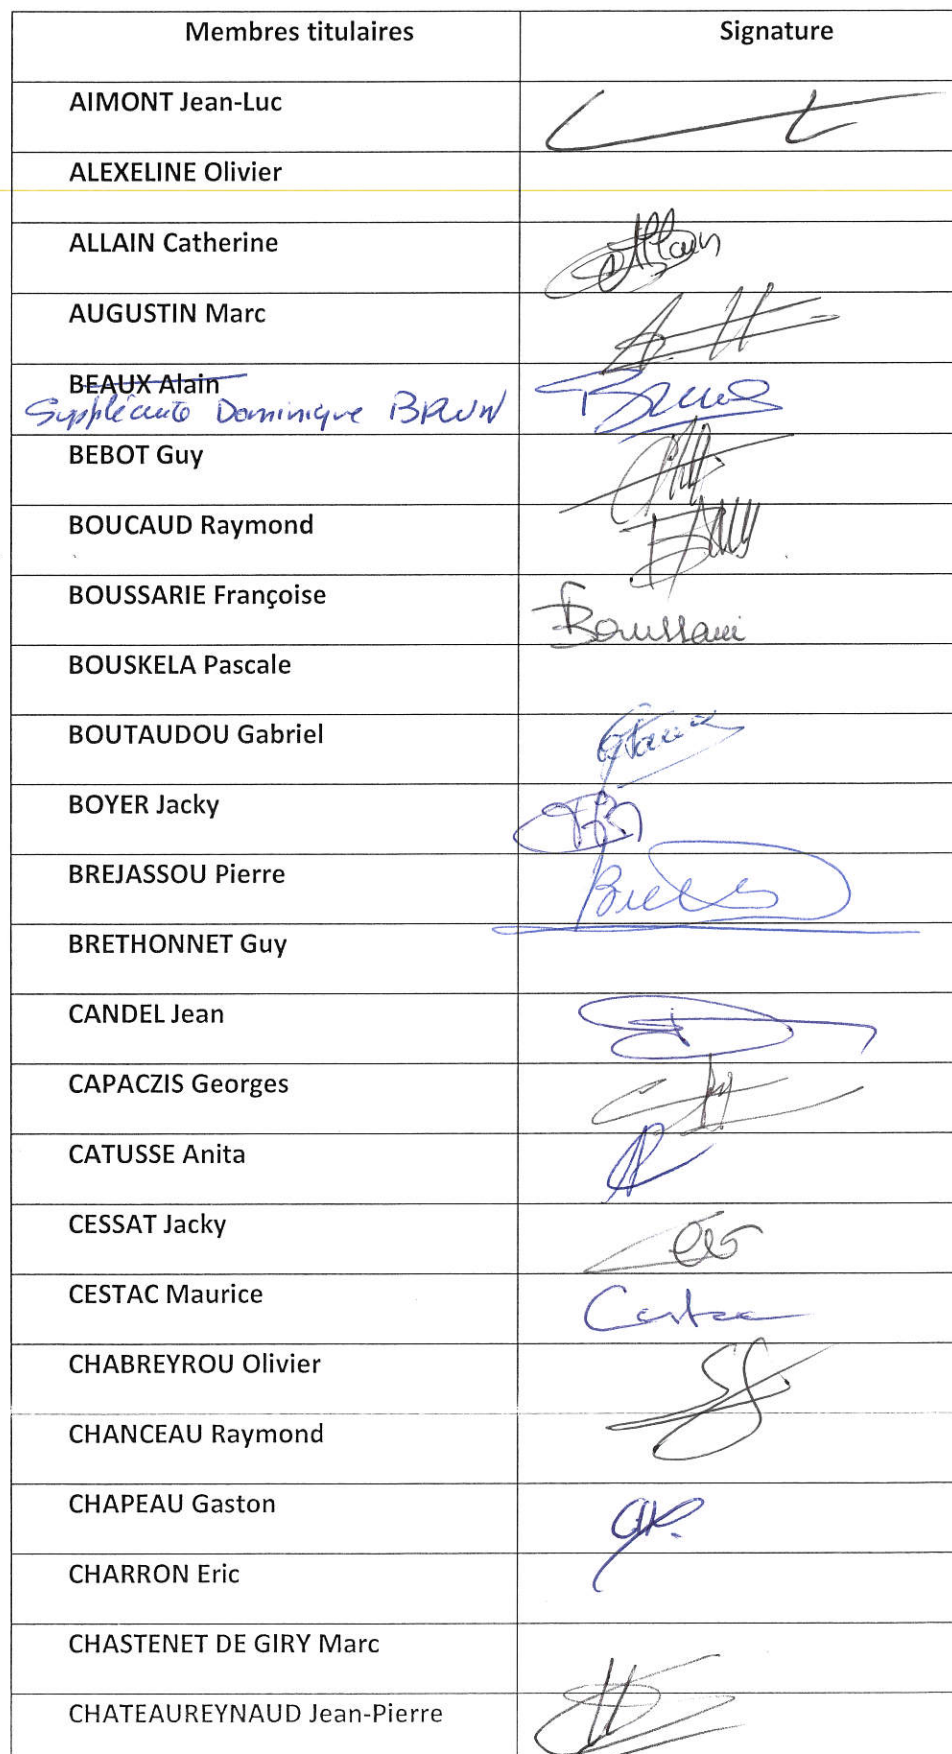 Membres titulaires Signature
AIMONT Jean-Luc
ALEXELINE Olivier
ALLAIN Catherine Allain
AUGUSTIN Marc
BEAUX Alain
Suppléante Dominique BRUN
BEBOT Guy
BOUCAUD Raymond
BOUSSARIE Françoise Boussarie
BOUSKELA Pascale
BOUTAUDOU Gabriel
BOYER Jacky
BREJASSOU Pierre
BRETHONNET Guy
CANDEL Jean
CAPACZIS Georges
CATUSSE Anita
CESSAT Jacky
CESTAC Maurice Cestac
CHABREYROU Olivier
CHANCEAU Raymond
CHAPEAU Gaston
CHARRON Eric
CHASTENET DE GIRY Marc
CHATEAUREYNAUD Jean-Pierre